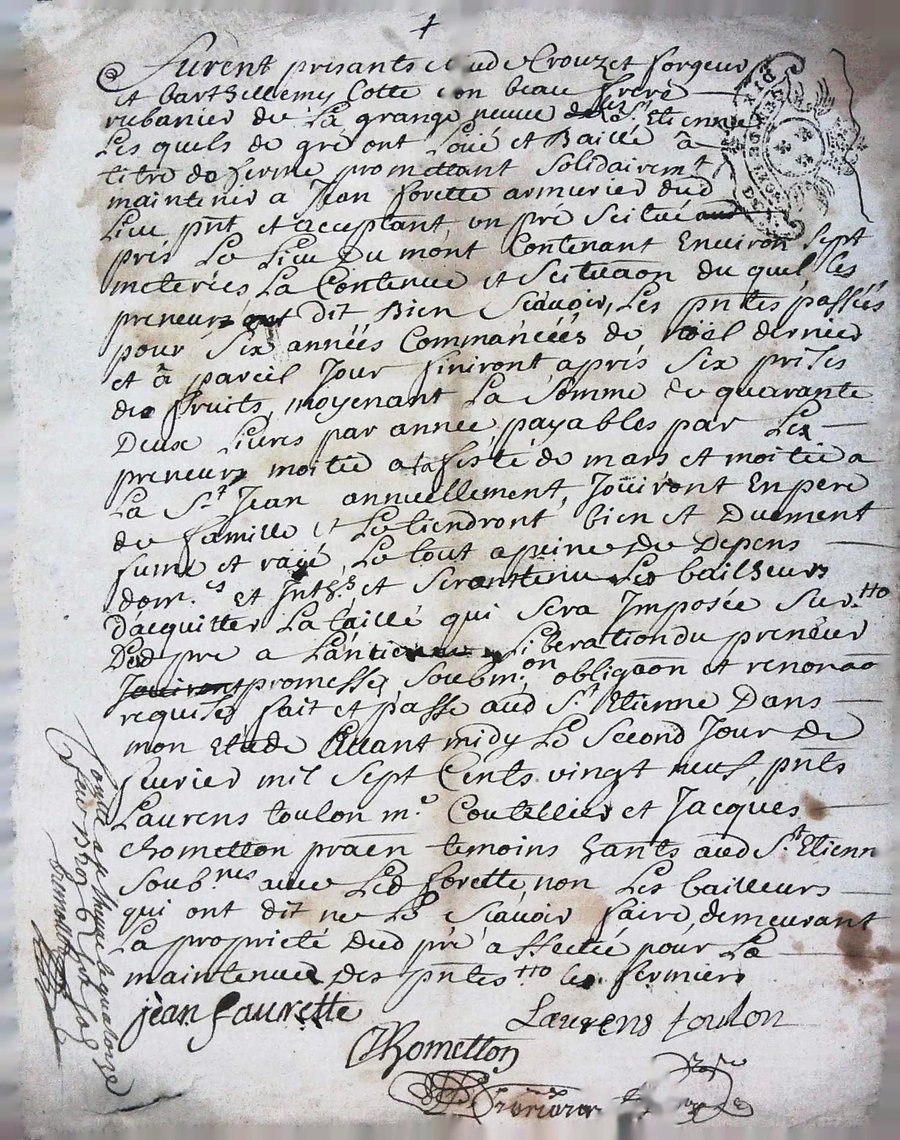 Furent présants Claude Crouzet forgeur
et barthellemy Cotte son beau frere
rubanier de La grange neuve St. Etienne
Les quels de gré ont Loué et Baillé â
titre de ferme promettant Solidairemt
maintenir a Jean forette armurier dud
Lieu pnt et acceptant un pré Scitué
prés Le Lieu Du mont Contenant Environ Sept
meteries La Contenue et Scituaon du quel les
preneurs ont dit Bien Scavoir, Les pntes passées
pour Six années Commancées de noel dernier
et â pareil Jour finiront aprés Six prises
de fruits, moyenant La Somme de quarante
Deux Livres par année payables par Les
preneurs moitie a la feste de mars et moitie a
La St. Jean annuellement, Joüiront En pere
de famille et Le tiendront bien et Duement
fumé et raié, Le tout a peine De Depens
dom.s et Inth.s et Seront tenu Les bailheurs
D'acquitter La taille qui Sera Imposée Sur
Led pre a L'antiere Liberation du preneur
promesses Soubm.on obligaon et renonao
requises fait et passé aud St. Etienne Dans
mon Etude avant midy Le Second Jour de
feuvrier mil Sept Cents vingt neuf, pnts
Laurens toulon m.e Coutellier et Jacques
Chometton praen temoins hants aud St. Etienn
Soub.nes avec Led forette, non Les bailleurs
qui ont dit ne Le Scavoir faire, demeurant
La proprieté Dud pré affectée pour La
maintenue Des pntes les fermiers
jean faurette
Laurens toulon
Chometton